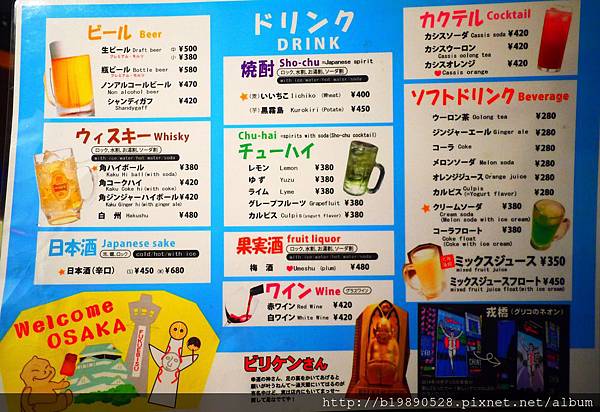 ビール Beer
生ビール Draft beer 中 ¥500
プレミアム・モルツ 小 ¥380
瓶ビール Bottle beer ¥580
プレミアム・モルツ
ノンアルコールビール ¥420
Non alcohol beer
シャンディガフ ¥420
Shandygaff
ウィスキー Whisky
ロック、水割、お湯割、ソーダ割
with ice/water/hot water/soda
★角ハイボール ¥380
Kaku Hi ball(with soda)
角コークハイ ¥420
Kaku Coke hi(with coke)
角ジンジャーハイボール ¥420
Kaku Ginger hi(with ginger ale)
白州 Hakushu ¥480
日本酒 Japanese sake
cold/hot/with ice
★日本酒(辛口) (S) ¥450 (K) ¥680
Welcome
OSAKA
ドリンク
DRINK
焼酎 Sho-chu =Japanese spirit
ロック、水割、お湯割、ソーダ割
with ice/water/hot water/soda
★(麦)いいちこ Iichiko (Wheat) ¥400
(芋)黒霧島 Kurokiri(Potato) ¥450
Chu-hai =spirits with soda(Sho-chu cocktail)
チューハイ
レモン Lemon ¥380
ゆず Yuzu ¥380
ライム Lyme ¥380
グレープフルーツ Grapefluit ¥380
カルピス Culpis(=yogurt flavor) ¥380
果実酒 fruit liquor
ロック、水割、お湯割、ソーダ割
with ice/water/hot water/soda
梅酒 ♥Umeshu(plum) ¥480
ワイン Wine グラスワイン
赤ワイン Red Wine ¥420
白ワイン White Wine ¥420
ビリケンさん
幸運の神さん、足の裏をかいてあげると
カクテル Cocktail
カシスソーダ Cassis soda ¥420
カシスウーロン ¥420
Cassis oolong tea
カシスオレンジ ¥420
♥Cassis orange
ソフトドリンク Beverage
ウーロン茶 Oolong tea ¥280
ジンジャーエール Ginger ale ¥280
コーラ Coke ¥280
メロンソーダ Melon soda ¥280
オレンジジュース Orange juice ¥280
カルピス Culpis ¥280
(=Yogurt flavor)
★クリームソーダ ¥380
Cream soda
(Melon soda with ice cream)
コーラフロート ¥380
Coke float
(Coke with ice cream)
★ミックスジュース ¥350
mixed fruit juice
★ミックスジュースフロート ¥450
mixed fruit juice float(with ice cream)
戎橋 (グリコのネオン)
http://b19890528.pixnet.net/album